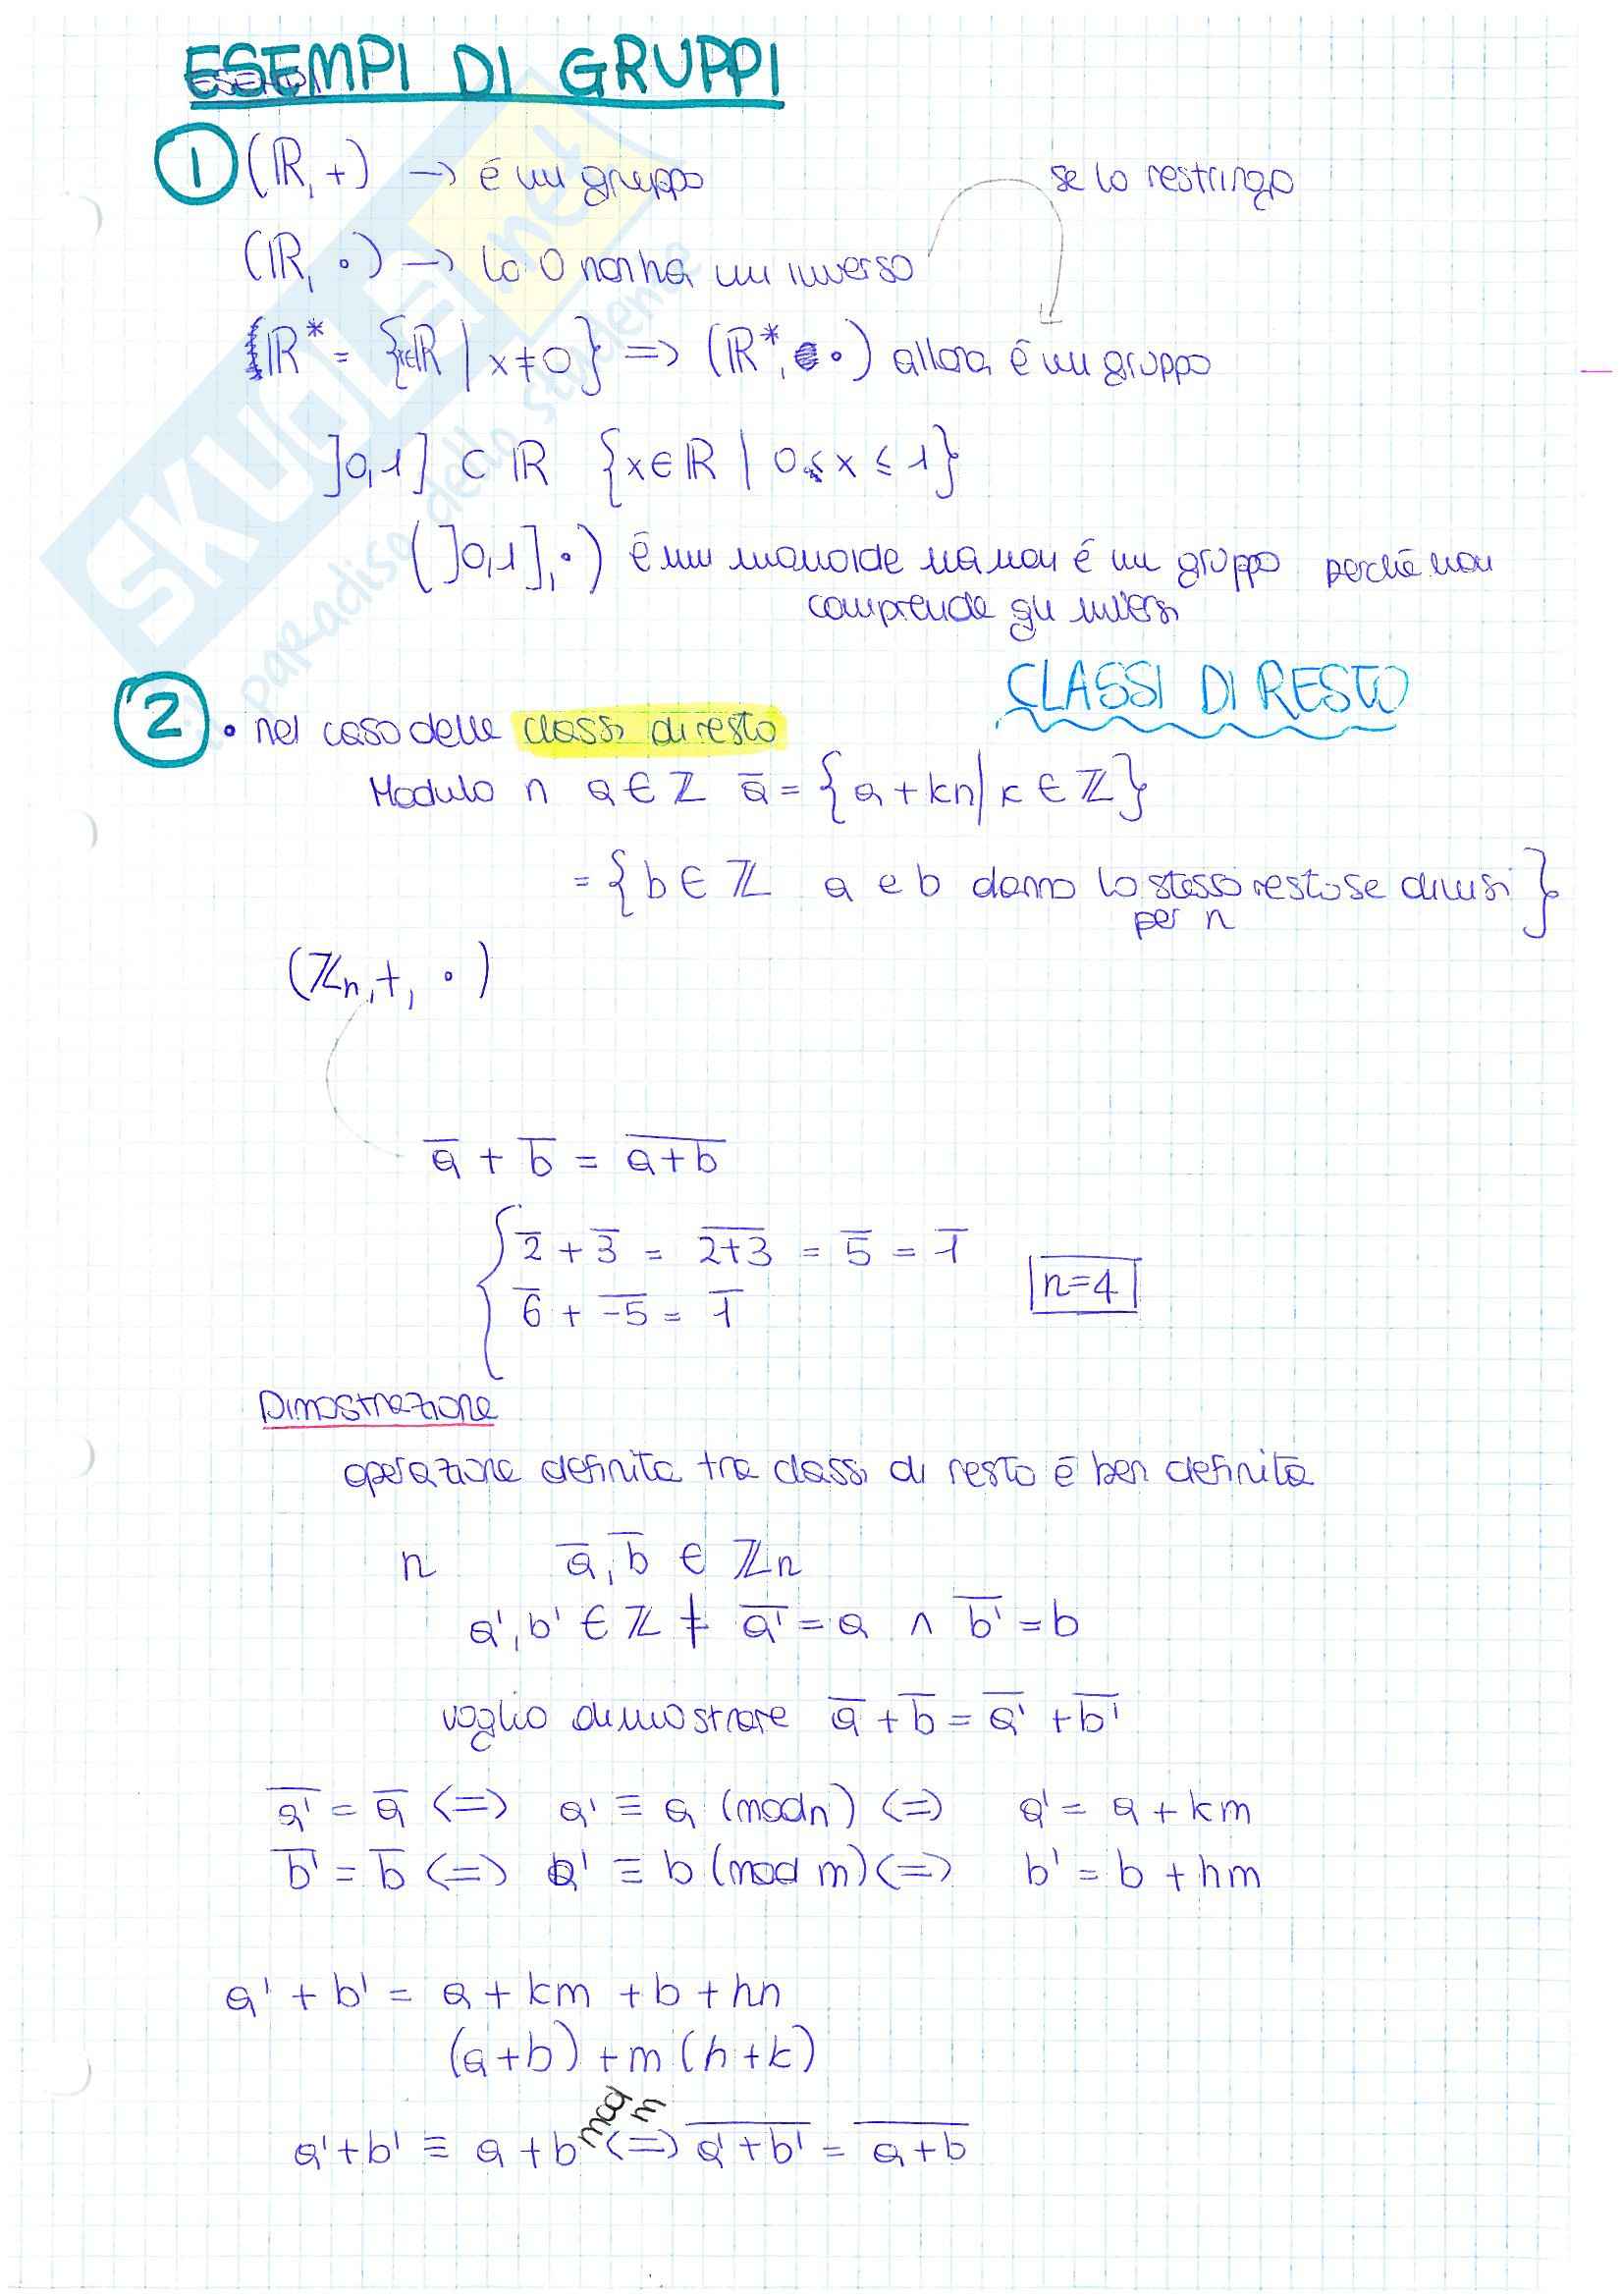 ESEMPI DI GRUPPI
① (ℝ, +) → é un gruppo
se lo restringo
(ℝ, ·) → lo 0 non ha un inverso
ℝ* = {x∈ℝ | x ≠ 0} => (ℝ*, ·) allora é un gruppo
]0,1] ⊂ ℝ {x∈ℝ | 0 < x ≤ 1}
(]0,1], ·) é un monoide ma non é un gruppo perché non
comprende gli inversi
CLASSI DI RESTO
② • nel caso delle classi di resto
Modulo n a ∈ ℤ a̅ = {a + kn | k ∈ ℤ}
= {b ∈ ℤ a e b danno lo stesso resto se divisi
per n }
(ℤn, +, ·)
a̅ + b̅ = \overline{a+b}
{ \overline{2} + \overline{3} = \overline{2+3} = \overline{5} = \overline{1}
\overline{6} + \overline{-5} = \overline{1}
n=4
Dimostrazione
operazione definita tra classi di resto é ben definita
n a̅, b̅ ∈ ℤn
a', b' ∈ ℤ ≠ \overline{a'} = a ∧ \overline{b'} = b
voglio dimostrare a̅ + b̅ = \overline{a'} + \overline{b'}
\overline{a'} = a̅ <=> a' ≡ a (mod n) <=> a' = a + km
\overline{b'} = b̅ <=> b' ≡ b (mod m) <=> b' = b + hm
a' + b' = a + km + b + hn
(a+b) + m (h+k)
a'+b' ≡ a+b mod m <=> \overline{a'+b'} = \overline{a+b}
SKUOLA.net
il paradiso dello studente